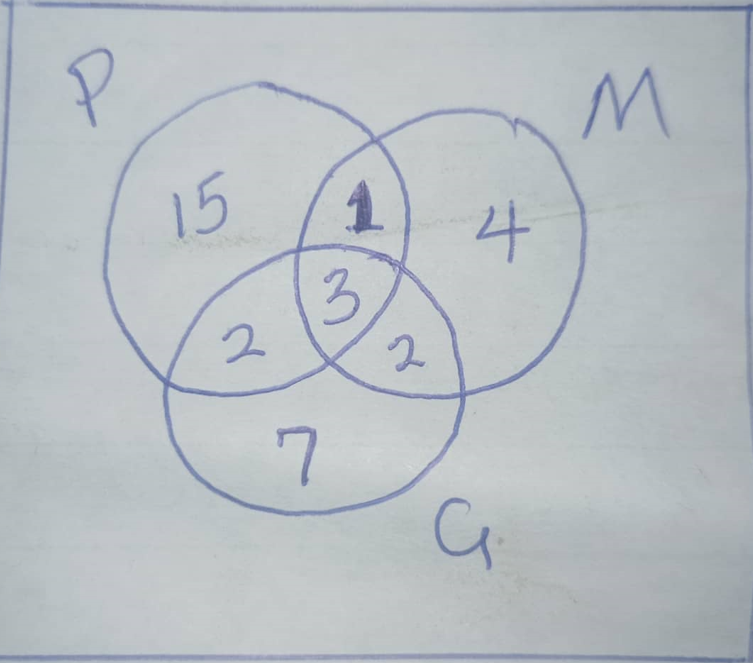 P
M
15
1
4
3
2
2
7
G